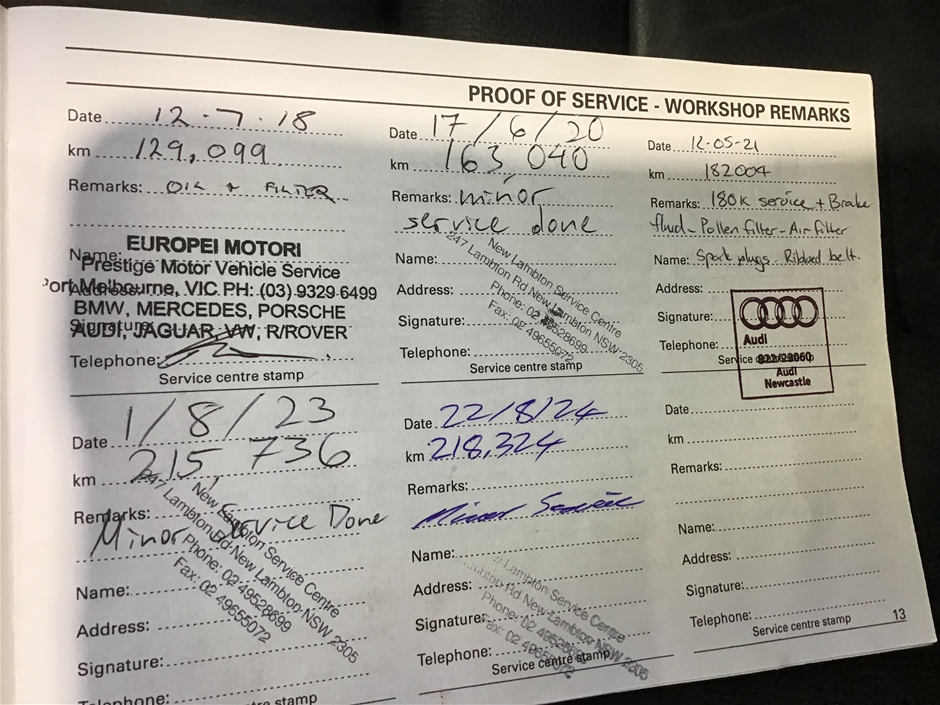 PROOF OF SERVICE - WORKSHOP REMARKS
Date 12-7-18
km 129,099
Remarks: OIL + FILTER
Name:
EUROPEI MOTORI
Prestige Motor Vehicle Service
Port Melbourne, VIC PH: (03) 9329 6499
Address:
BMW, MERCEDES, PORSCHE
Signature:
AUDI, JAGUAR, VW, R/ROVER
Telephone:
Service centre stamp
Date 17/6/20
km 163,040
Remarks: minor
service done
Name:
Address:
Signature:
Telephone:
New Lambton Service Centre
247 Lambton Rd New Lambton NSW 2305
Phone: 02 49528699
Fax: 02 49655072
Service centre stamp
Date 12-05-21
km 182004
Remarks: 180K service + Brake
fluid - Pollen filter - Air filter
Name: Spark plugs. Ribbed belt.
Address:
Signature:
Telephone:
Audi
Service centre stamp
Audi
Newcastle
Date 1/8/23
km 215,736
Remarks:
Minor Service Done
Name:
Address:
Signature:
Telephone:
New Lambton Service Centre
247 Lambton Rd New Lambton NSW 2305
Phone: 02 49528699
Fax: 02 49655072
centre stamp
Date 22/8/24
km 218,324
Remarks:
Minor Service
Name:
Address:
Signature:
Telephone:
Lambton Service Centre
Lambton Rd New Lambton NSW 2305
Phone: 02 49528699
Fax: 02 49655072
Service centre stamp
Date
km
Remarks:
Name:
Address:
Signature:
Telephone:
Service centre stamp
13